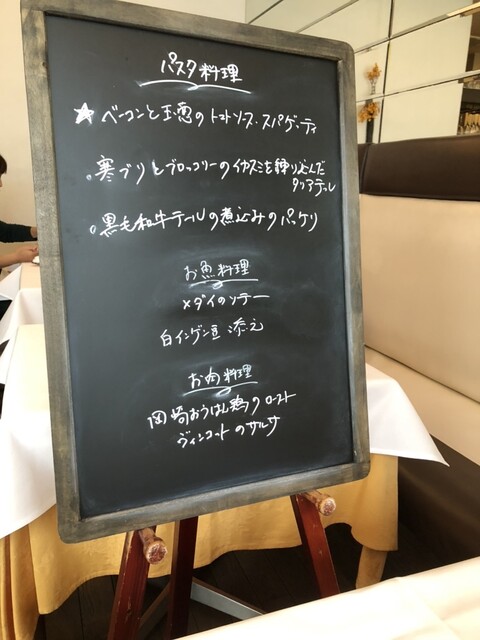 パスタ料理
★ ベーコンと玉葱のトマトソース・スパゲッティ
。寒ブリとブロッコリーのイカスミを練り込んだ
タリアテッレ
。黒毛和牛テールの煮込みのパッケリ
お魚料理
メダイのソテー
白インゲン豆 添え
お肉料理
岡崎おうはん鶏のロースト
ヴィンコットのサルサ